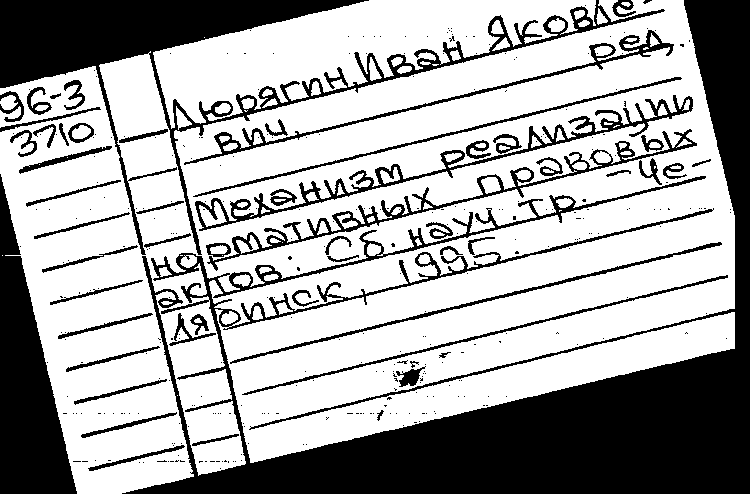 96-3
3710
Дюрягин, Иван Яковле-
вич. ред.
Механизм реализации
нормативных правовых
актов: Сб. науч. тр. - Че-
лябинск, 1995.